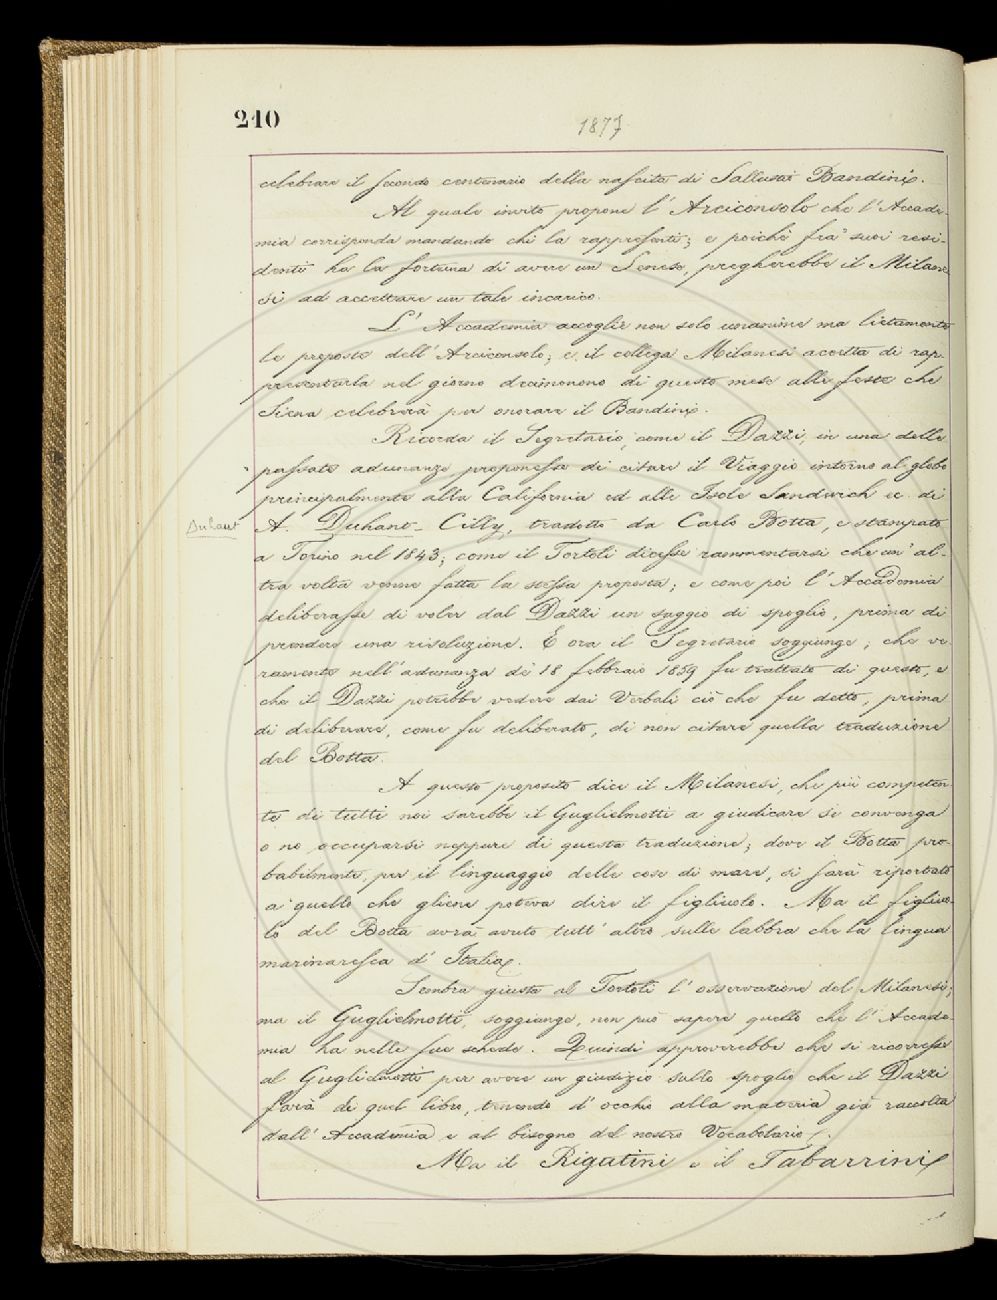 210
1877
celebrare il secondo centenario della nascita di Sallustio Bandini.
Al quale invito propone l'Arciconsolo che l'Accade-
mia corrisponda mandando chi la rappresenti; e poichè fra' suoi resi-
denti ha la fortuna di avere un Senese, pregherebbe il Milane-
si ad accettare un tale incarico.
L'Accademia accoglie non solo unanime ma lietamente
le proposte dell'Arciconsolo; e il collega Milanesi accetta di rap-
presentarla nel giorno decimonono di questo mese alle feste che
Siena celebrerà per onorare il Bandini.
Ricorda il Segretario, come il Dazzi, in una delle
passate adunanze proponesse di citare il Viaggio intorno al globo
principalmente alla California ed alle Isole Sandwich ec. di
Duhaut
A. Duhaut-Cilly, tradotto da Carlo Botta, e stampato
a Torino nel 1843; come il Tortoli dicesse rammentarsi che un' al-
tra volta venne fatta la stessa proposta; e come poi l'Accademia
deliberasse di voler dal Dazzi un saggio di spoglio, prima di
prendere una risoluzione. E ora il Segretario soggiunge, che ve-
ramente nell'adunanza de' 18 febbraio 1859 fu trattato di questo, e
che il Dazzi potrebbe vedere dai Verbali ciò che fu detto, prima
di deliberare, come fu deliberato, di non citare quella traduzione
del Botta.
A questo proposito dice il Milanesi, che più competen-
te di tutti noi sarebbe il Guglielmotti a giudicare se convenga
o no occuparsi neppure di questa traduzione; dove il Botta pro-
babilmente, per il linguaggio delle cose di mare, si sarà riportato
a quello che gliene poteva dire il figliuolo. Ma il figliuo-
lo del Botta avrà avuto tutt'altro sulle labbra che la lingua
marinaresca d'Italia.
Sembra giusta al Tortoli l'osservazione del Milanesi;
ma il Guglielmotti, soggiunge, non può sapere quello che l'Accade-
mia ha nelle sue schede. Quindi approverebbe che si ricorresse
al Guglielmotti per avere un giudizio sullo spoglio che il Dazzi
farà di quel libro, tenendo d'occhio alla materia già raccolta
dall'Accademia e al bisogno del nostro Vocabolario.
Ma il Rigutini e il Tabarrini